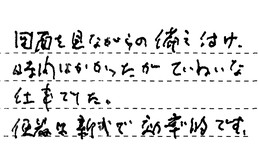 図面を見ながらの備え付け。
時間はかかったが ていねいな
仕事でした。
便器は新式で 効率的です。